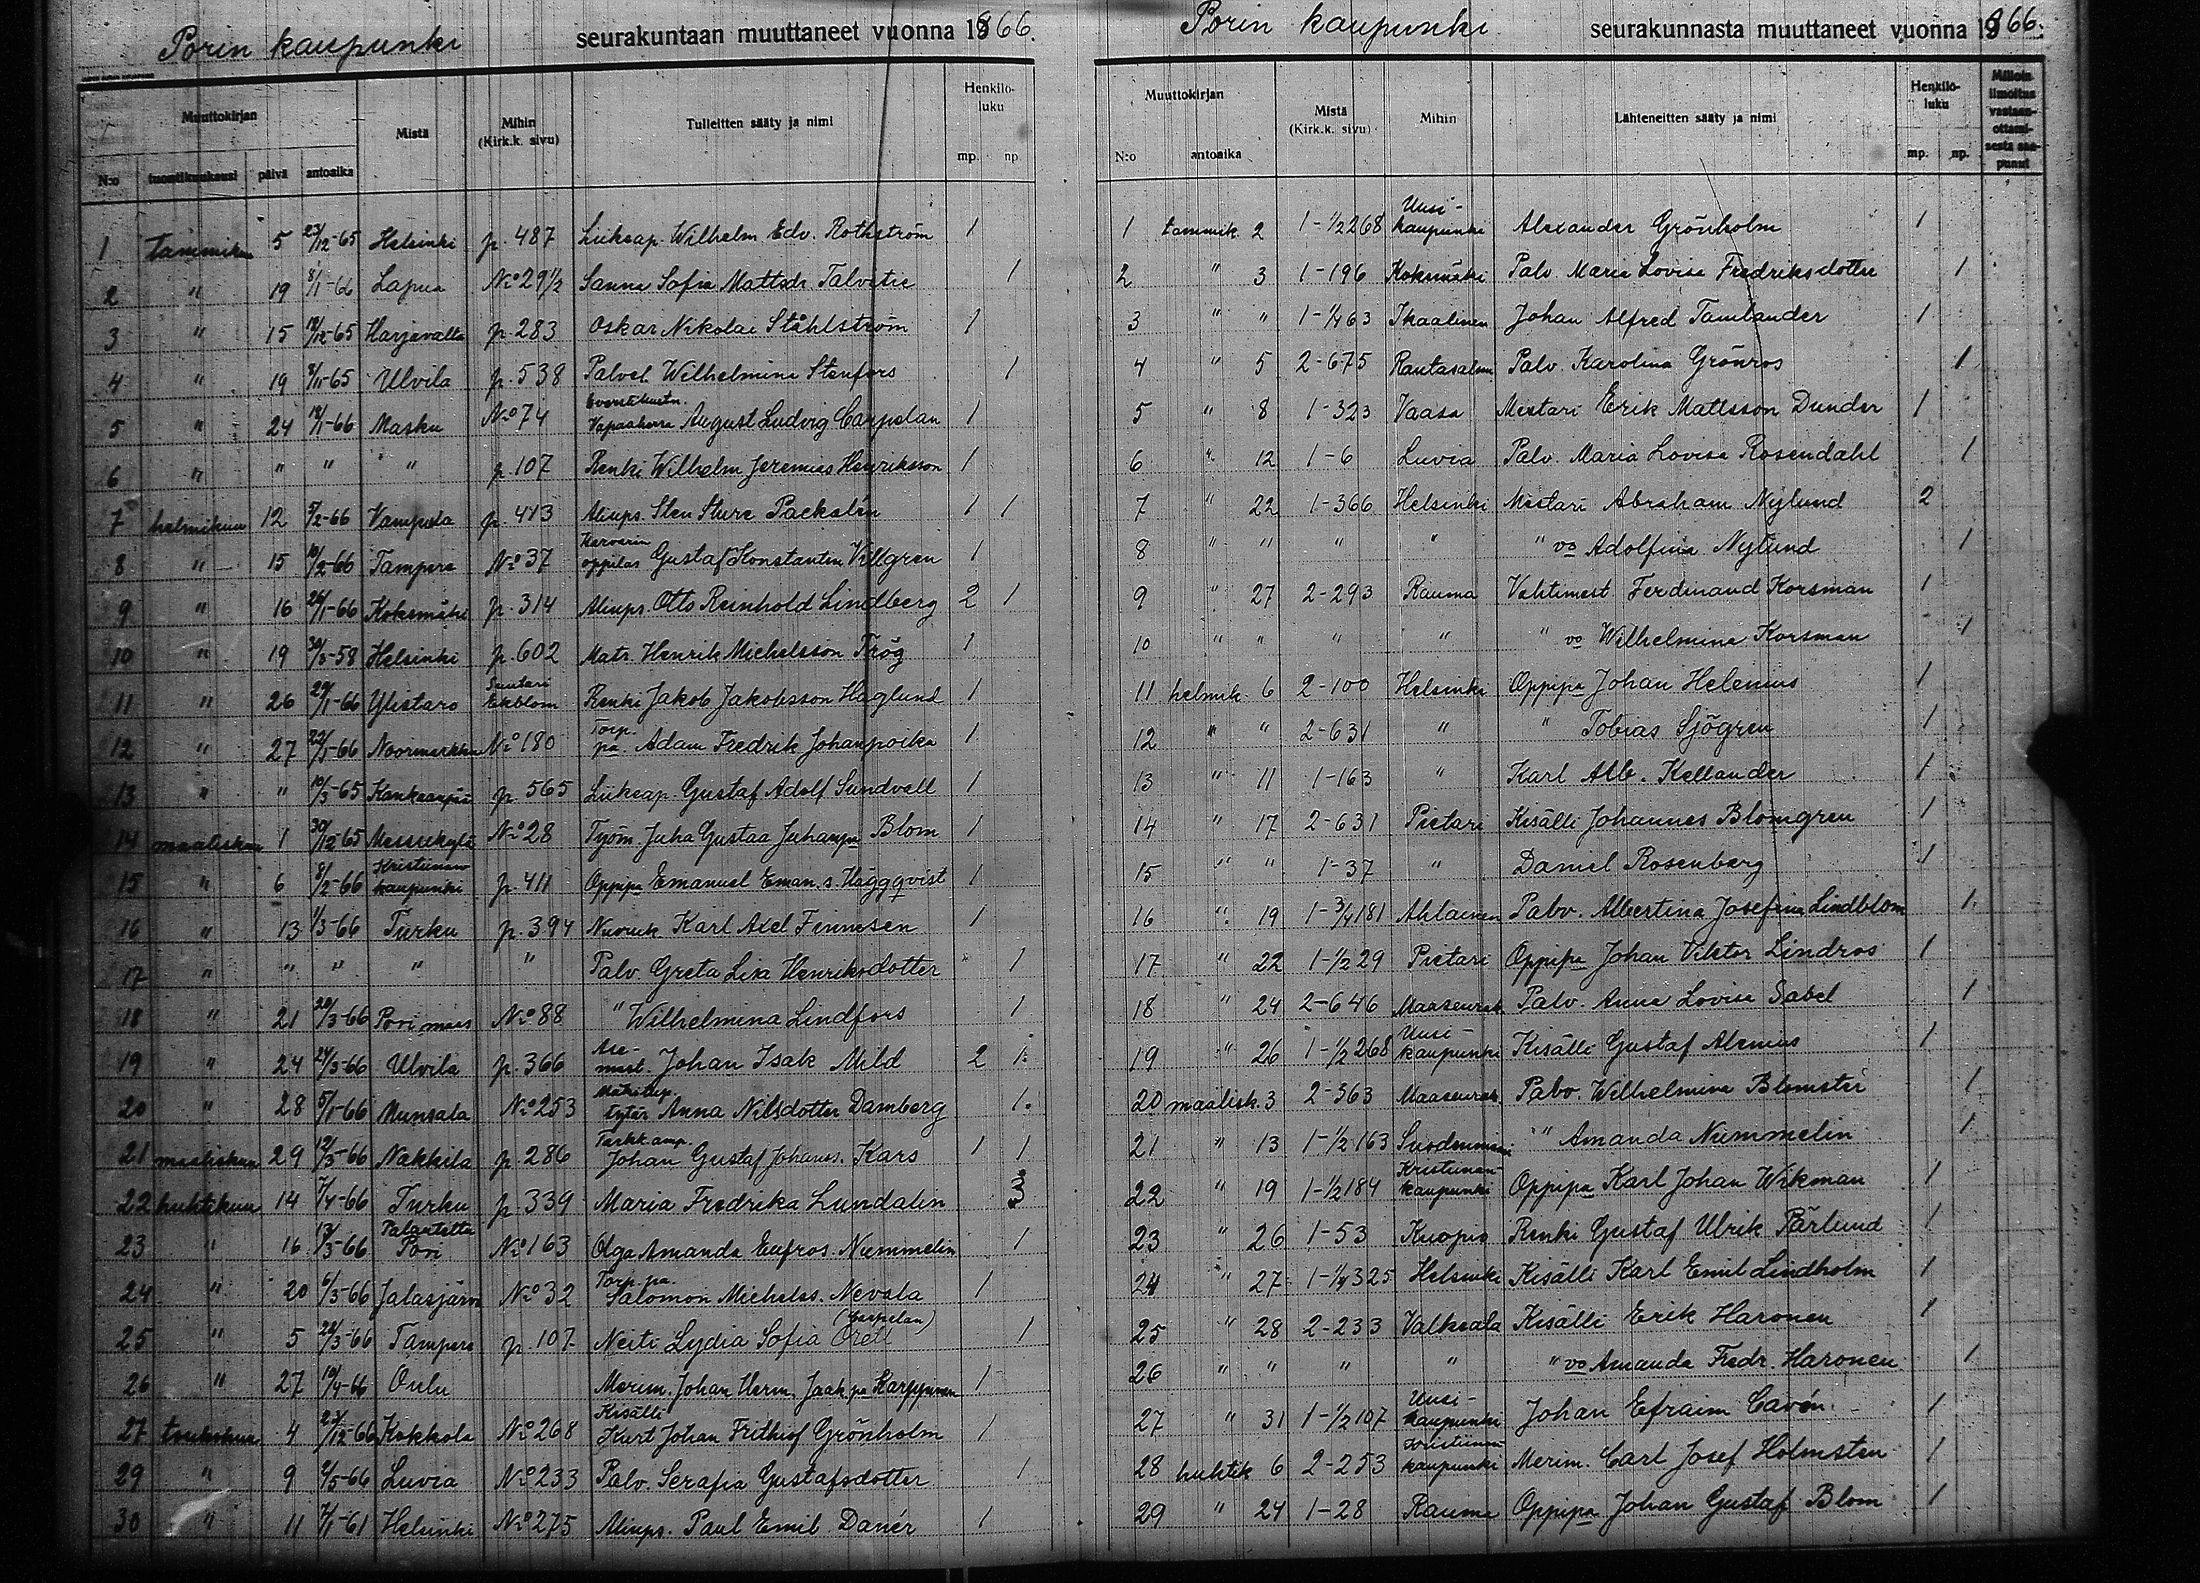 Porin kaupunki seurakuntaan muuttaneet vuonna 1866.
Muuttokirjan Mistä Mihin (Kirk.k. sivu) Tulleitten sääty ja nimi Henkilöluku
N:o tuontikuukausi päivä antoaika mp. np.
1 tammikuu 5 23/12-65 Helsinki p. 487 Liikeap. Wilhelm Edv. Rothström 1
2 " 19 8/1-66 Lapua No 29 1/2 Sanna Sofia Mattsdr Talvitie 1
3 " 15 18/12-65 Harjavalta p. 283 Oskar Nikolai Ståhlström 1
4 " 19 8/11-65 Ulvila p. 538 Palvel. Wilhelmina Stenfors 1
5 " 24 18/1-66 Masku No 74 Everstiluutn. Vapaaherra August Ludvig Carpelan 1
6 " " " " p. 107 Renki Wilhelm Jeremias Henriksson 1
7 helmikuu 12 5/2-66 Vampula p. 413 Aliups. Sten Sture Packalén 1 1
8 " 15 10/2-66 Tampere No 37 Karvarin oppilas Gustaf Konstantin Villgren 1
9 " 16 26/1-66 Kokemäki p. 314 Aliups. Otto Reinhold Lindberg 2 1
10 " 19 30/5-58 Helsinki p. 602 Matr. Henrik Michelsson Trög 1
11 " 26 29/1-66 Ylistaro Suutari Ekblom Renki Jakob Jakobsson Haglund 1
12 " 27 22/1-66 Noormarkku No 180 Torp. pa. Adam Fredrik Johanpoika 1
13 " " 10/3-65 Kankaanpää p. 565 Liikeap. Gustaf Adolf Sundvall 1
14 maaliskuu 1 30/12-65 Messukylä No 28 Työm. Juha Gustaa Juhanpa Blom 1
15 " 6 8/2-66 Kristiinankaupunki p. 411 Oppipa Emanuel Eman. s. Häggqvist 1
16 " 13 1/3-66 Turku p. 394 Nuoruk. Karl Axel Finnesen 1
17 " " " " " Palv. Greta Lisa Henriksdotter 1
18 " 21 20/3-66 Pori maas No 88 " Wilhelmina Lindfors 1
19 " 24 24/3-66 Ulvila p. 366 Ase-mest. Johan Isak Mild 2 1
20 " 28 5/1-66 Munsala No 253 tytär Anna Nilsdotter Damberg 1
21 maaliskuu 29 12/3-66 Nakkila p. 286 Tarkk.amp. Johan Gustaf Johans. Kars 1 1
22 huhtikuu 14 7/4-66 Turku p. 339 Maria Fredrika Lundalin 3
23 " 16 13/3-66 Palautettu Pori No 163 Olga Amanda Eufros. Nummelin 1
24 " 20 6/3-66 Jalasjärvi No 32 Torp. pa. Salomon Michelss. Nevala 1
25 " 5 28/3-66 Tampere p. 107 Neiti Lydia Sofia Orell (Carpelan) 1
26 " 27 19/4-66 Oulu Merim. Johan Herm. Jaak.pa Karppinen 1
27 toukokuu 4 23/12-66 Kokkola No 268 Kisälli Kurt Johan Fridhiof Grönholm 1
29 " 9 2/5-66 Luvia No 233 Palv. Serafia Gustafsdotter 1
30 " 11 7/1-61 Helsinki No 275 Aliups. Paul Emil Danér 1
Porin kaupunki seurakunnasta muuttaneet vuonna 1866.
Muuttokirjan Mistä (Kirk.k. sivu) Mihin Lähteneitten sääty ja nimi Henkilöluku Milloin ilmoitus vastaanottamisesta saapunut
N:o antoaika mp. np.
1 tammik. 2 1-1/2 268 Uusi-kaupunki Alexander Grönholm 1
2 " 3 1-196 Kokemäki Palv. Maria Lovisa Fredriksdotter 1
3 " " 1-1/4 63 Ikaalinen Johan Alfred Tamlander 1
4 " 5 2-675 Rantasalmi Palv. Karolina Grönros 1
5 " 8 1-323 Vaasa Mestari Erik Mattsson Dunder 1
6 " 12 1-6 Luvia Palv. Maria Lovisa Rosendahl 1
7 " 22 1-366 Helsinki Mestari Abraham Nylund 2
8 " " " " " vo Adolfina Nylund 1
9 " 27 2-293 Rauma Vahtimest. Ferdinand Korsman 1
10 " " " " " vo Wilhelmina Korsman 1
11 helmik. 6 2-100 Helsinki Oppipa Johan Helenius 1
12 " " 2-631 " " Tobias Sjögren 1
13 " 11 1-163 " Karl Alb. Kellander 1
14 " 17 2-631 Pietari Kisälli Johannes Blomgren 1
15 " " 1-37 " Daniel Rosenberg 1
16 " 19 1-3/4 181 Ahlainen Palv. Albertina Josefina Lindblom 1
17 " 22 1-1/2 29 Pietari Oppipa Johan Viktor Lindros 1
18 " 24 2-646 Maaseurak. Palv. Anna Lovisa Sabel 1
19 " 26 1-1/2 268 Uusi-kaupunki Kisälli Gustaf Alenius 1
20 maalisk. 3 2-363 Maaseurak. Palv. Wilhelmina Blomster 1
21 " 13 1-1/2 163 Suodenniemi " Amanda Nummelin 1
22 " 19 1-1/2 184 Kristiinan-kaupunki Oppipa Karl Johan Wikman 1
23 " 26 1-53 Kuopio Renki Gustaf Ulrik Pärlund 1
24 " 27 1-1/4 325 Helsinki Kisälli Karl Emil Lindholm 1
25 " 28 2-233 Valkeala Kisälli Erik Haronen 1
26 " " " " " vo Amanda Fredr. Haronen 1
27 " 31 1-1/2 107 Uusi-kaupunki Johan Efraim Cavén 1
28 huhtik 6 2-253 Kristiinankaupunki Merim. Carl Josef Holmsten 1
29 " 24 1-28 Rauma Oppipa Johan Gustaf Blom 1